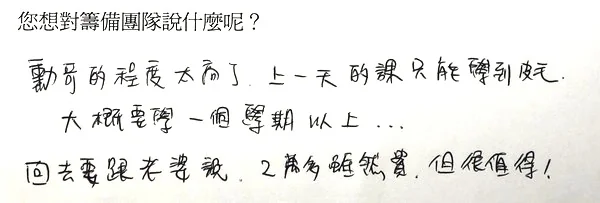 您想對籌備團隊說什麼呢？
勳哥的程度太高了，上一天的課只能學到皮毛.
大概要學一個學期以上...
回去要跟老婆說，2萬多雖然貴，但很值得！